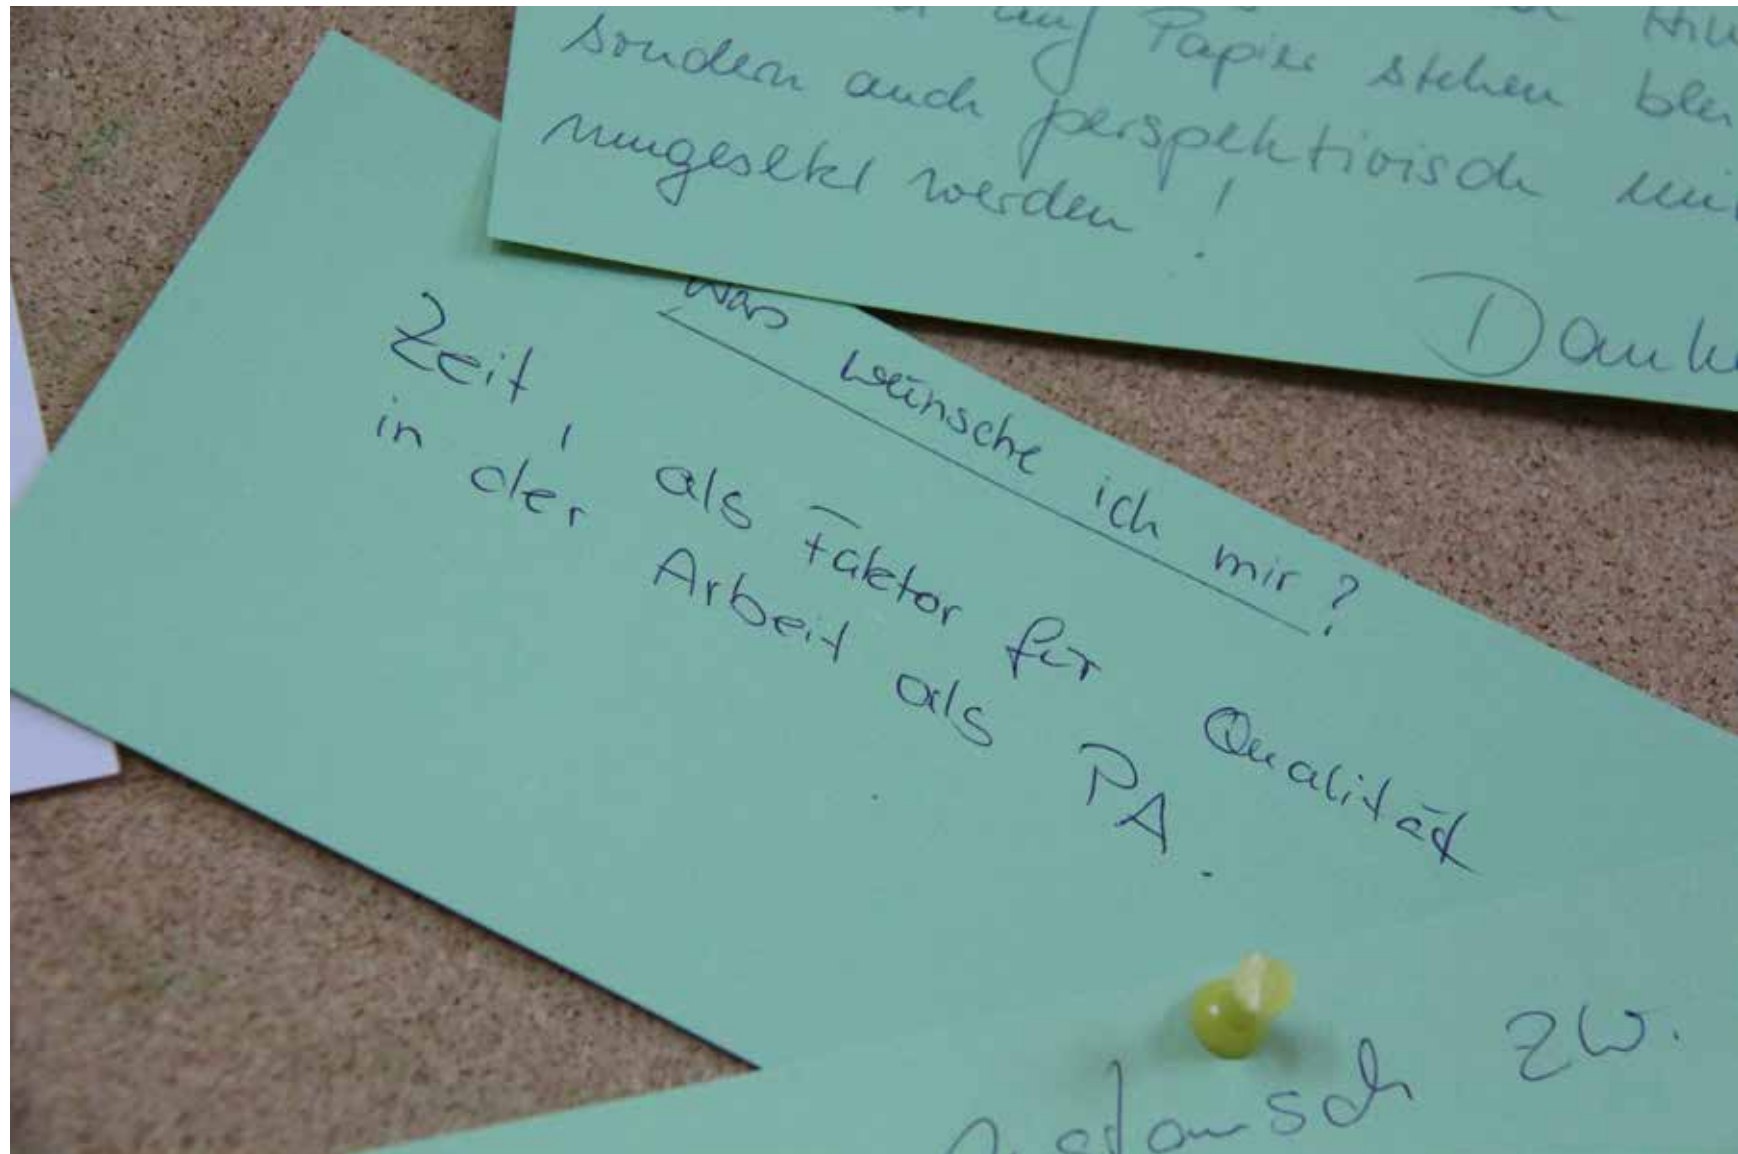 auf Papier stehen
sondern auch perspektivisch
umgesetzt werden !
Danke
Was wünsche ich mir ?
Zeit, als Faktor für Qualität
in der Arbeit als PA.
zw.